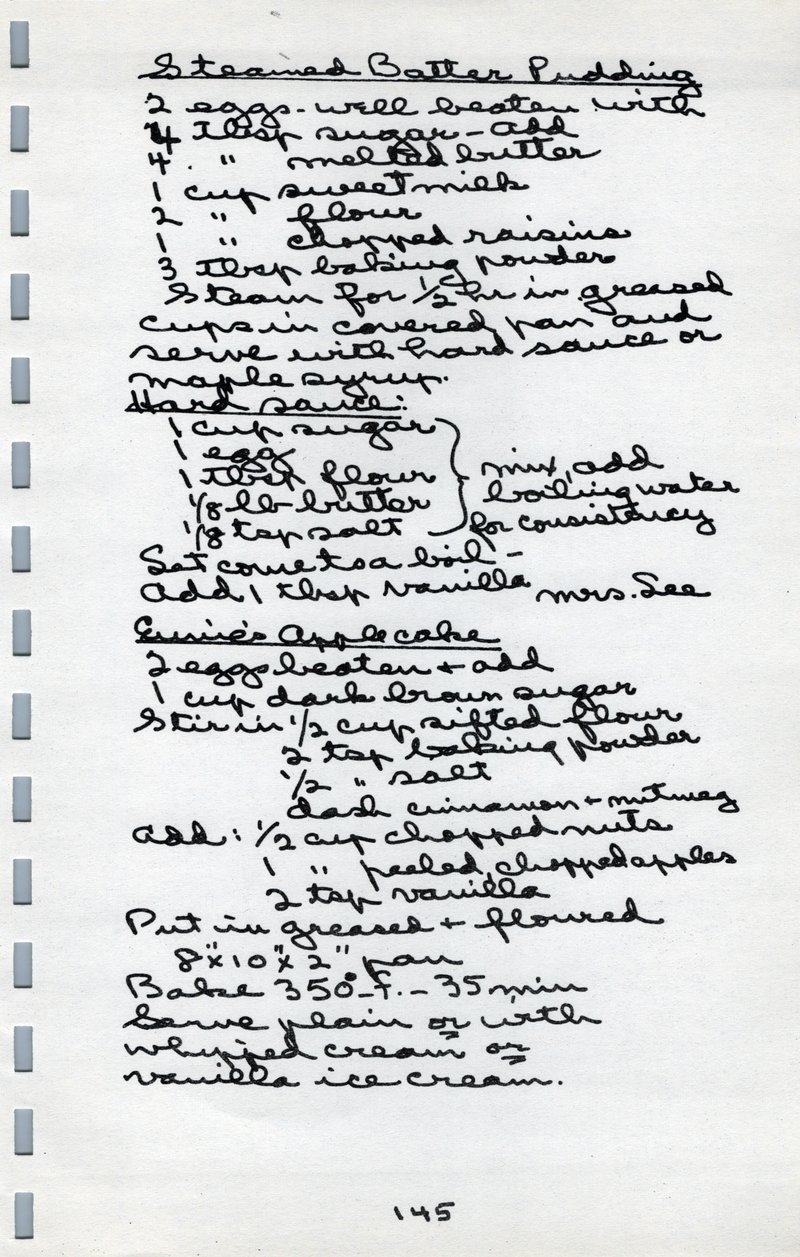 Steamed Batter Pudding
2 eggs - well beaten with
4 tbsp sugar - add
4 " melted butter
1 cup sweet milk
2 " flour
1 " chopped raisins
3 tbsp baking powder
Steam for 1/2 hr in greased
cups in covered pan and
serve with hard sauce or
maple syrup.
Hard sauce:
1 cup sugar
1 egg
1 tbsp flour
1/8 lb butter
1/8 tsp salt
mix, add
boiling water
for consistancy
Set come to a boil -
Add 1 tbsp vanilla Mrs. See
Ernie's Applecake
2 eggs beaten + add
1 cup dark brown sugar
Stir in 1/2 cup sifted flour
2 tsp baking powder
1/2 " salt
dash cinnamon + nutmeg
Add: 1/2 cup chopped nuts
1 " peeled, chopped apples
2 tsp vanilla
Put in greased + floured
8"x10"x2" pan
Bake 350° F. - 35 min
Serve plain or with
whipped cream or
vanilla ice cream.
145